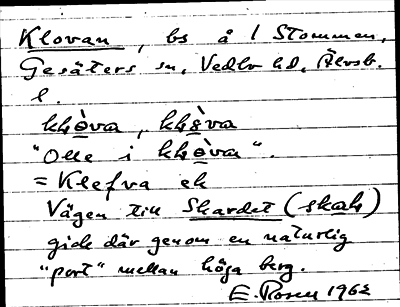 Klovan, bs å 1 Stommen,
Gesäters sn, Vedbo hd, Älvsb.
l.
khòva, khòva
"Olle i khòva".
= Klefva ek
Vägen till Skardet (skah)
gick där genom en naturlig
"port" mellan höga berg.
E. Rosen 1962